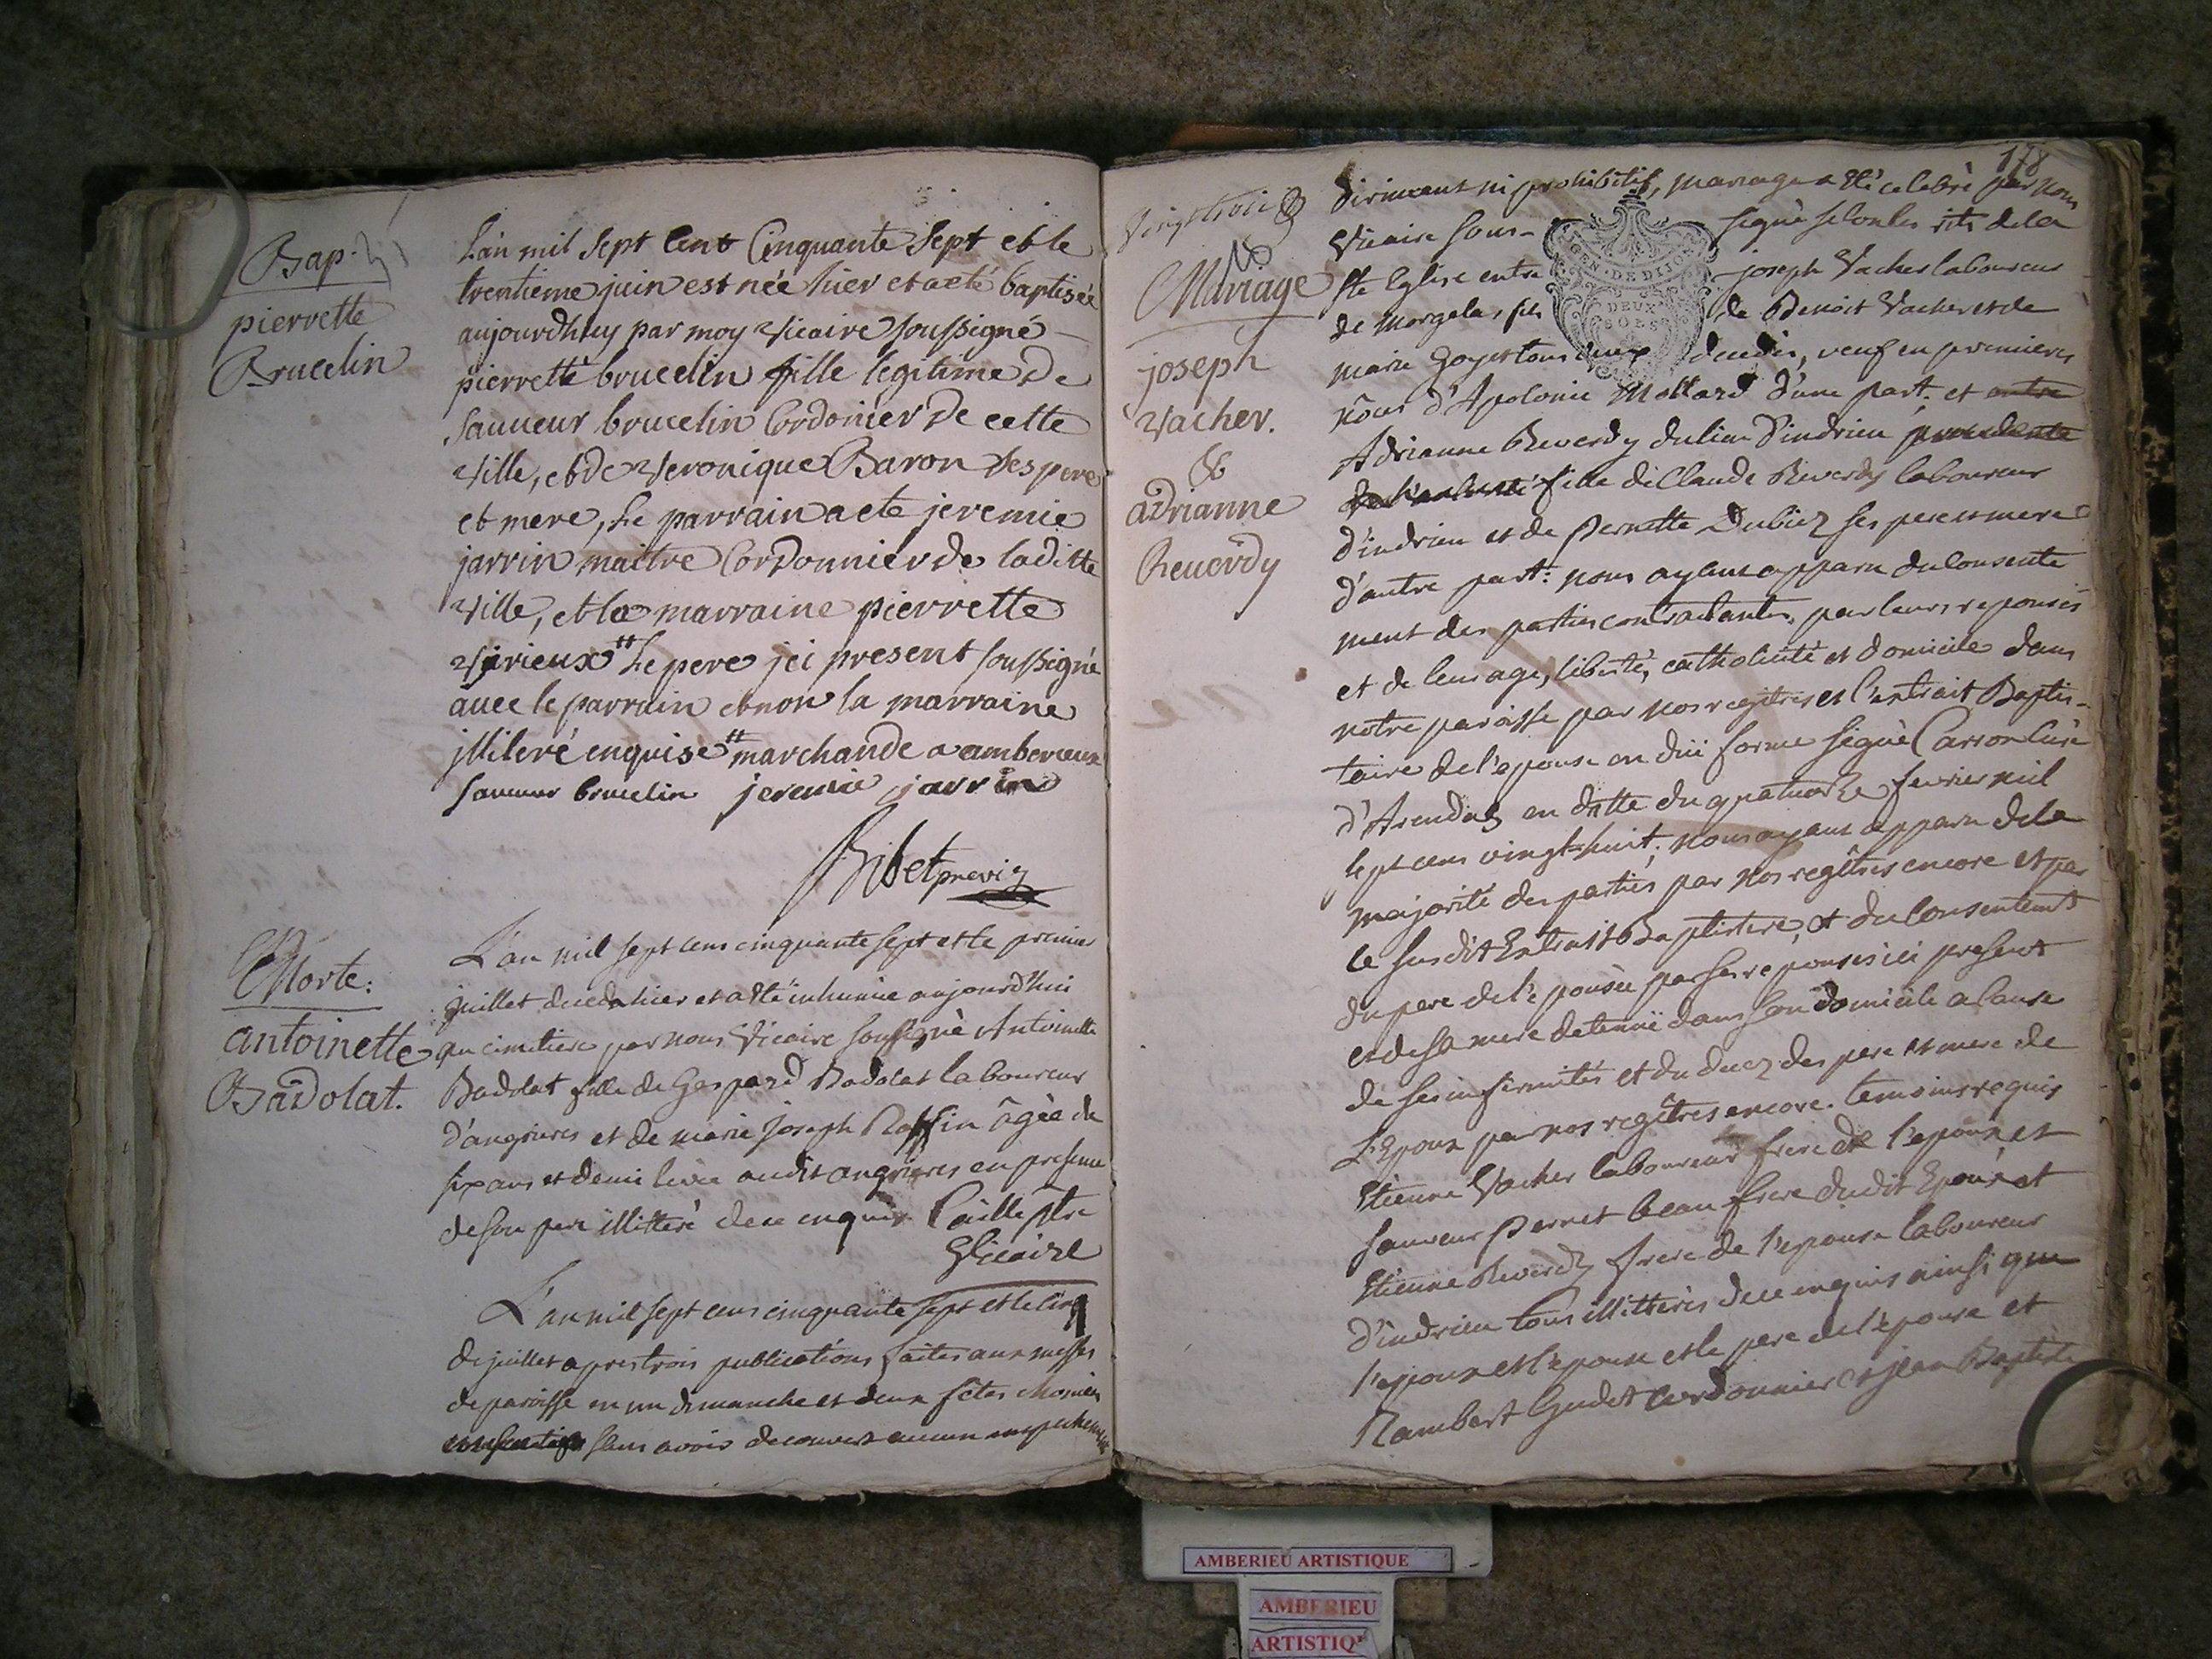 Bap.
pierrette
Brucelin
L'an mil sept Cent Cinquante Sept et le
trentieme juin est née hier et a eté baptisée
aujourdhuy par moy vicaire soussigné
pierrette brucelin fille legitime de
sauveur brucelin Cordonier de cette
ville, et de veronique Baron ses pere
et mere, Le parrain a ete jeremie
jarrin maitre Cordonnier de laditte
ville, et la marraine pierrette
virieux # Le pere jci present soussigné
avec le parrain et non la marraine
jlliteré enquise # marchande a amberieux
sauveur brucelin jeremie jarrin
Ribet
Morte:
antoinette
Badolat.
L'an mil sept cens cinquante sept et le premier
juillet deceda hier et a Eté inhumée aujourd'hui
au cimitiere par nous Vicaire soussigné Antoinette
Badolat fille de Gaspard Badolat laboureur
d'angrieres et de marie joseph Raffin âgée de
six ans et demi audit angrieres en presence
de son pere illitteré de ce enquis Caille ptre
Vicaire
L'an mil sept cens cinquante sept et le cinq
de juillet apres trois publications faites aux messes
de paroisse en un dimanche et deux fêtes
sans avoir decouvert aucun empechement
178
Vingt trois
Mariage
joseph
vacher.
&
adrianne
Reverdy
dirimant ni prohibitif, mariage a Eté celebré par nous
Vicaire sous- signé selon les rits de la
Ste Eglise entre joseph Vacher laboureur
de Morgelas, fils de Benoit Vacher et de
marie Goyet tous deux decedés, veuf en premieres
nôces d'Apolonie Mollard d'une part; et entre
Adrianne Reverdy du lieu d'indrieu precedente
fille de Claude Reverdy laboureur
d'indrieu et de Pernette Dubiez ses pere et mere
d'autre part: nous ayant apparu du consente
ment des parties contractantes, par leurs reponses
et de leur age, liberté, catholicité et domicile dans
notre paroisse par nos regîtres et l'extrait Baptis-
taire de l'epouse en düe forme signé Carron Curé
d'Arandas en datte du quatorze fevrier mil
sept cens vingt-huit; nous ayant apparu de la
majorité des parties par nos regîtres encore et par
le susdit Extrait Baptistere, et du consentement
du pere de l'epousée par ses reponses ici present
et de sa mere detenuë dans son domicile a cause
de ses infirmités et du decez des pere et mere de
L'Epoux par nos regîtres encore. temoins requis
Etienne Vacher laboureur frere de l'epoux et
sauveur Pernet beau frere dudit Epoux et
Etienne Reverdy frere de l'epouse laboureur
d'indrieu tous illitterés de ce enquis ainsi que
l'epoux et l'epouse et le pere de l'epouse et
Rambert Gudet cordonnier et jean Baptiste
GEN. DE DIJON
DEUX
SOLS
AMBERIEU ARTISTIQUE
AMBERIEU
ARTISTIQ